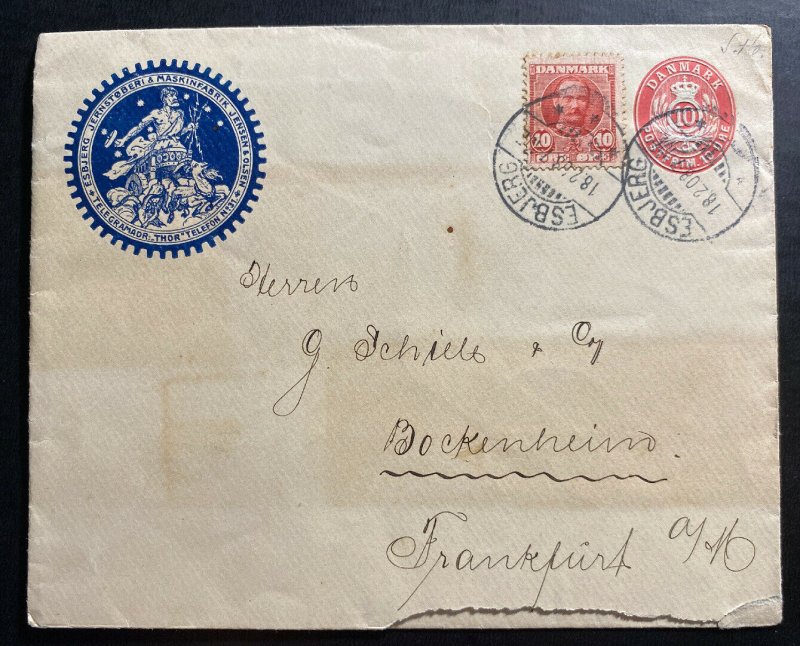 ESBJERG JERNSTØBERI & MASKINFABRIK JENSEN & OLSEN
TELEGRAMADR: "THOR" TELEFON No 31.
DANMARK
10 10
DANMARK
10
POSTFRIM. 10 ØRE
ESBJERG
18.2.09
ESBJERG
18.2.09
Herren
G. Schiele & Co
Bockenheim.
Frankfurt a/M